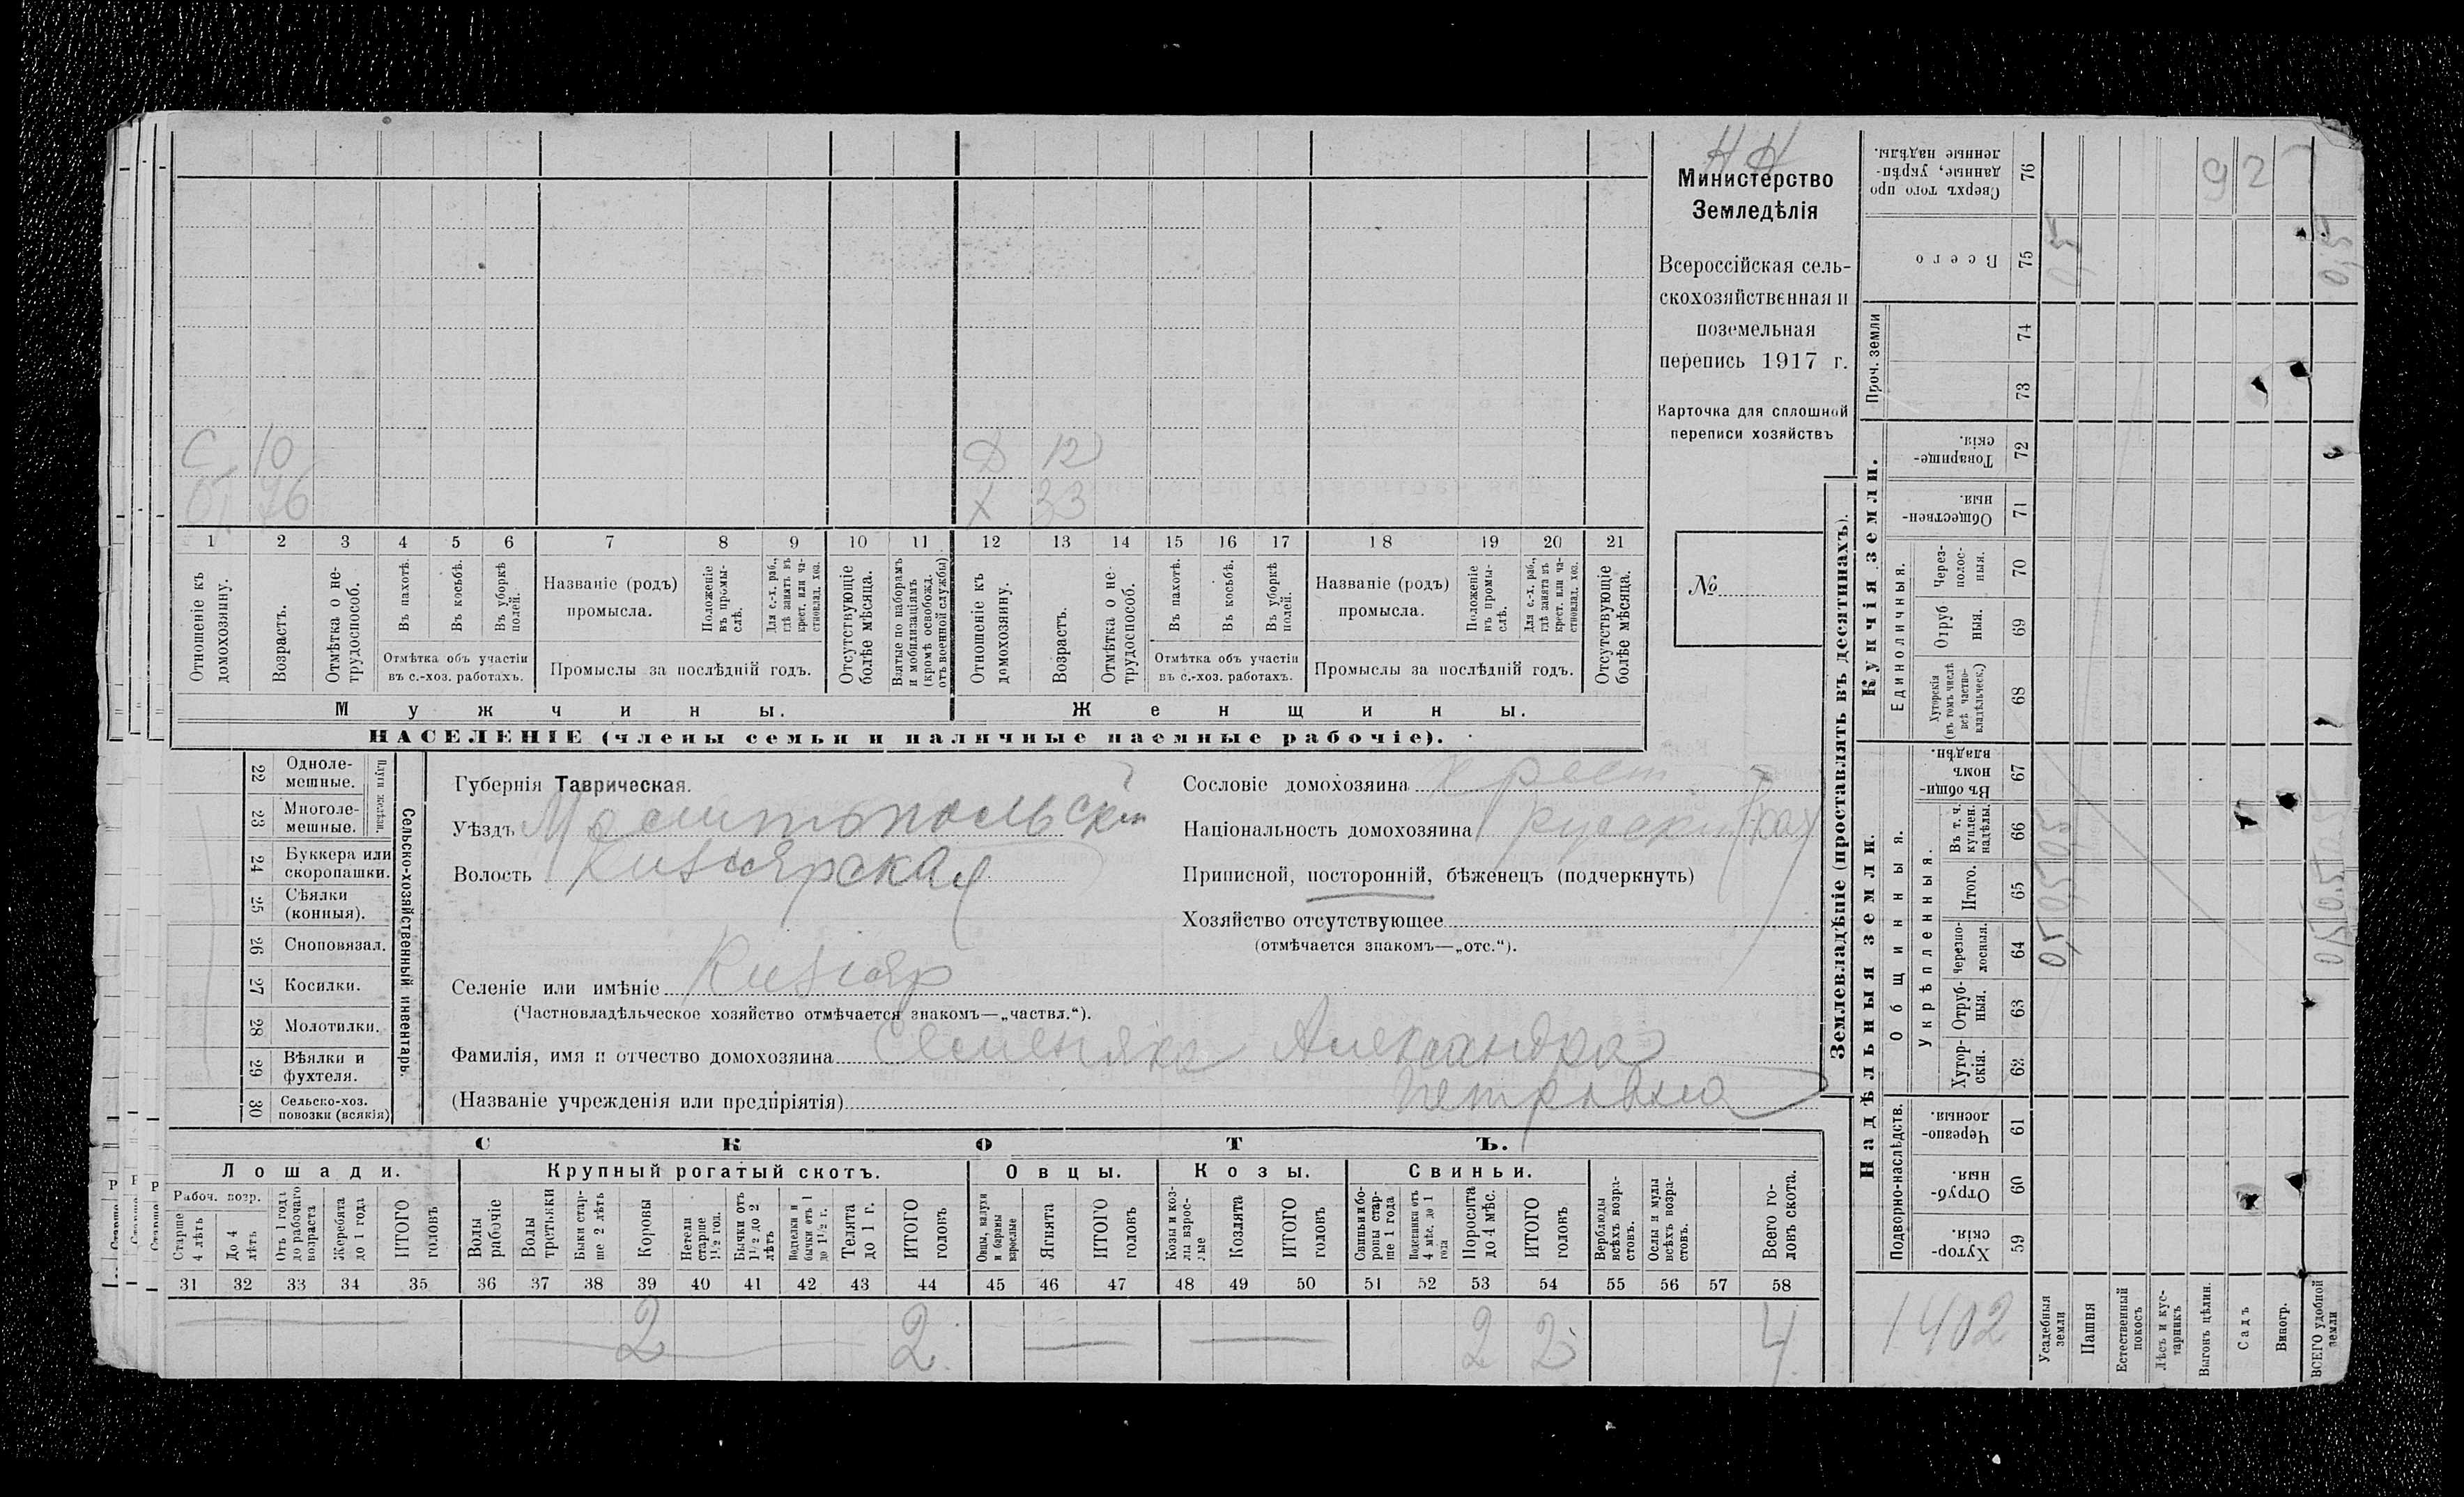 Н Н
Министерство
Земледѣлія
Всероссійская сель-
скохозяйственная и
поземельная
перепись 1917 г.
Карточка для сплошной
переписи хозяйствъ
№
С 10
76
Д 12
Х 33
1 2 3 4 5 6 7 8 9 10 11 12 13 14 15 16 17 18 19 20 21
Отношеніе къ домохозяину.
Возрастъ.
Отмѣтка о не-трудоспособ.
Въ пахотѣ.
Въ косьбѣ.
Въ уборкѣ полей.
Отмѣтка объ участіи въ с.-хоз. работахъ.
Названіе (родъ) промысла.
Положеніе въ промы-слѣ.
Для с.-х. раб., гдѣ занятъ въ крест. или ча-стновлад. хоз.
Промыслы за послѣдній годъ.
Отсутствующіе болѣе мѣсяца.
Взятые по наборамъ и мобилизаціямъ (кромѣ освобожд. отъ военной службы)
Отношеніе къ домохозяину.
Возрастъ.
Отмѣтка о не-трудоспособ.
Въ пахотѣ.
Въ косьбѣ.
Въ уборкѣ полей.
Отмѣтка объ участіи въ с.-хоз. работахъ.
Названіе (родъ) промысла.
Положеніе въ промы-слѣ.
Для с.-х. раб., гдѣ занята въ крест. или ча-стновлад. хоз.
Промыслы за послѣдній годъ.
Отсутствующіе болѣе мѣсяца.
Мужчины.
Женщины.
НАСЕЛЕНІЕ (члены семьи и наличные наемные рабочіе).
Сельско-хозяйственный инвентарь.
Плуги желѣзн.
22 Одноле-мешные.
23 Многоле-мешные.
24 Буккера или скоропашки.
25 Сѣялки (конныя).
26 Сноповязал.
27 Косилки.
28 Молотилки.
29 Вѣялки и фухтеля.
30 Сельско-хоз. повозки (всякія)
Губернія Таврическая.
Уѣздъ Мелитопольскій
Волость Кизіярская
Селеніе или имѣніе Кизіяр
(Частновладѣльческое хозяйство отмѣчается знакомъ—„частвл.“).
Фамилія, имя и отчество домохозяина Семеняка Александра
(Названіе учрежденія или предпріятія) Петровна
Сословіе домохозяина Крест
Національность домохозяина русская
Приписной, посторонній, бѣженецъ (подчеркнуть)
Хозяйство отсутствующее
(отмѣчается знакомъ—„отс.“).
СКОТЪ.
Лошади.
Крупный рогатый скотъ.
Овцы.
Козы.
Свиньи.
Рабоч. возр.
Старше 4 лѣтъ
До 4 лѣтъ
Отъ 1 года до рабочаго возраста
Жеребята до 1 года
ИТОГО головъ
Волы рабочіе
Волы третьяки
Быки стар-ше 2 лѣтъ
Коровы
Нетели старше 1½ год.
Бычки отъ 1½ до 2 лѣтъ
Подтелки и бычки отъ 1 до 1½ г.
Телята до 1 г.
ИТОГО головъ
Овцы, валухи и бараны взрослые
Ягнята
ИТОГО головъ
Козы и коз-лы взрос-лые
Козлята
ИТОГО головъ
Свиньи и бо-ровы стар-ше 1 года
Подсвинки отъ 4 мѣс. до 1 года
Поросята до 4 мѣс.
ИТОГО головъ
Верблюды всѣхъ возра-стовъ.
Ослы и мулы всѣхъ возра-стовъ.
Всего го-ловъ скота.
31 32 33 34 35 36 37 38 39 40 41 42 43 44 45 46 47 48 49 50 51 52 53 54 55 56 57 58
2 2 2 2 4
Землевладѣніе (проставлять въ десятинахъ).
Надѣльныя земли.
Купчія земли.
Проч. земли
Подворно-наслѣдств.
Общинныя.
Укрѣпленныя.
Единоличныя.
Хутор-скія. 59
Отруб-ныя. 60
Черезпо-лосныя. 61
Хутор-скія. 62
Отруб-ныя. 63
Черезпо-лосныя. 64
Итого. 65
Въ т. ч. куплен. надѣлы. 66
Въ общи-номъ владѣн. 67
Хуторскія (въ томъ числѣ всѣ частно-владѣльческ.) 68
Отруб ныя. 69
Через-полос-ныя. 70
Обществен-ныя. 71
Товарище-скія. 72
73
74
Всего 75
Сверхъ того про данные, укрѣп-ленные надѣлы. 76
1402
Усадебныя земли
Пашня
Естественный покосъ
Лѣсъ и кус-тарникъ
Выгонъ цѣлин.
Садъ
Виногр.
ВСЕГО удобной земли
0,5 0,5 0,5
0,5
0,5 0,5
0,5
92